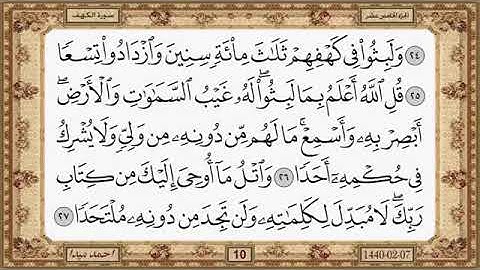 الجزء الخامس عشر
سورة الكهف
٢٤ وَلَبِثُوا۟ فِى كَهْفِهِمْ ثَلَٰثَ مِا۟ئَةٍ سِنِينَ وَٱزْدَادُوا۟ تِسْعًا
٢٥ قُلِ ٱللَّهُ أَعْلَمُ بِمَا لَبِثُوا۟ ۖ لَهُۥ غَيْبُ ٱلسَّمَٰوَٰتِ وَٱلْأَرْضِ ۖ
أَبْصِرْ بِهِۦ وَأَسْمِعْ ۚ مَا لَهُم مِّن دُونِهِۦ مِن وَلِىٍّ وَلَا يُشْرِكُ
فِى حُكْمِهِۦٓ أَحَدًا ٢٦ وَٱتْلُ مَآ أُوحِىَ إِلَيْكَ مِن كِتَابِ
رَبِّكَ ۖ لَا مُبَدِّلَ لِكَلِمَٰتِهِۦ وَلَن تَجِدَ مِن دُونِهِۦ مُلْتَحَدًا ٢٧
1440-02-07
10